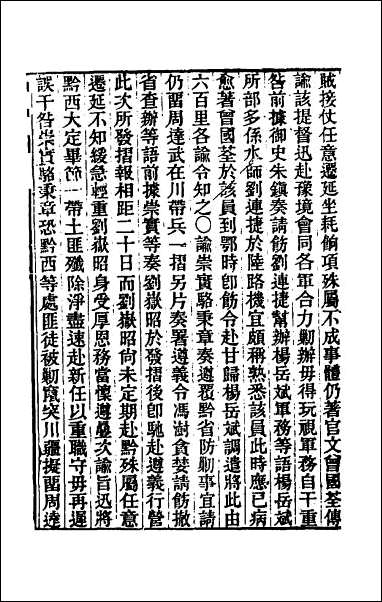 賊接仗任意遷延坐耗餉項殊屬不成事體仍著官文曾國荃傳
諭該提督迅赴豫境會同各軍合力勦辦毋得玩視軍務自干重
咎前據御史朱鎮奏請飭劉連捷幫辦楊岳斌軍務等語楊岳斌
所部多係水師劉連捷於陸路機宜頗稱熟悉該員此時應已病
愈著曾國荃於該員到鄂時卽飭令赴甘歸楊岳斌調遣將此由
六百里各諭令知之○諭崇實駱秉章奏遵覆黔省防勦事宜請
仍留周達武在川帶兵一摺另片奏署遵義令馮澍貪婪請飭撤
省查辦等語前據崇實等奏劉嶽昭於發摺後卽馳赴遵義行營
此次所發摺報相距二十日而劉嶽昭尚未定期赴黔殊屬任意
遷延不知緩急輕重劉嶽昭身受厚恩務當懷遵疊次諭旨迅將
黔西大定畢節一帶土匪殲除淨盡速赴新任以重職守毋再遲
誤干咎崇實駱秉章恐黔西等處匪徒被勦竄突川疆擬留周達